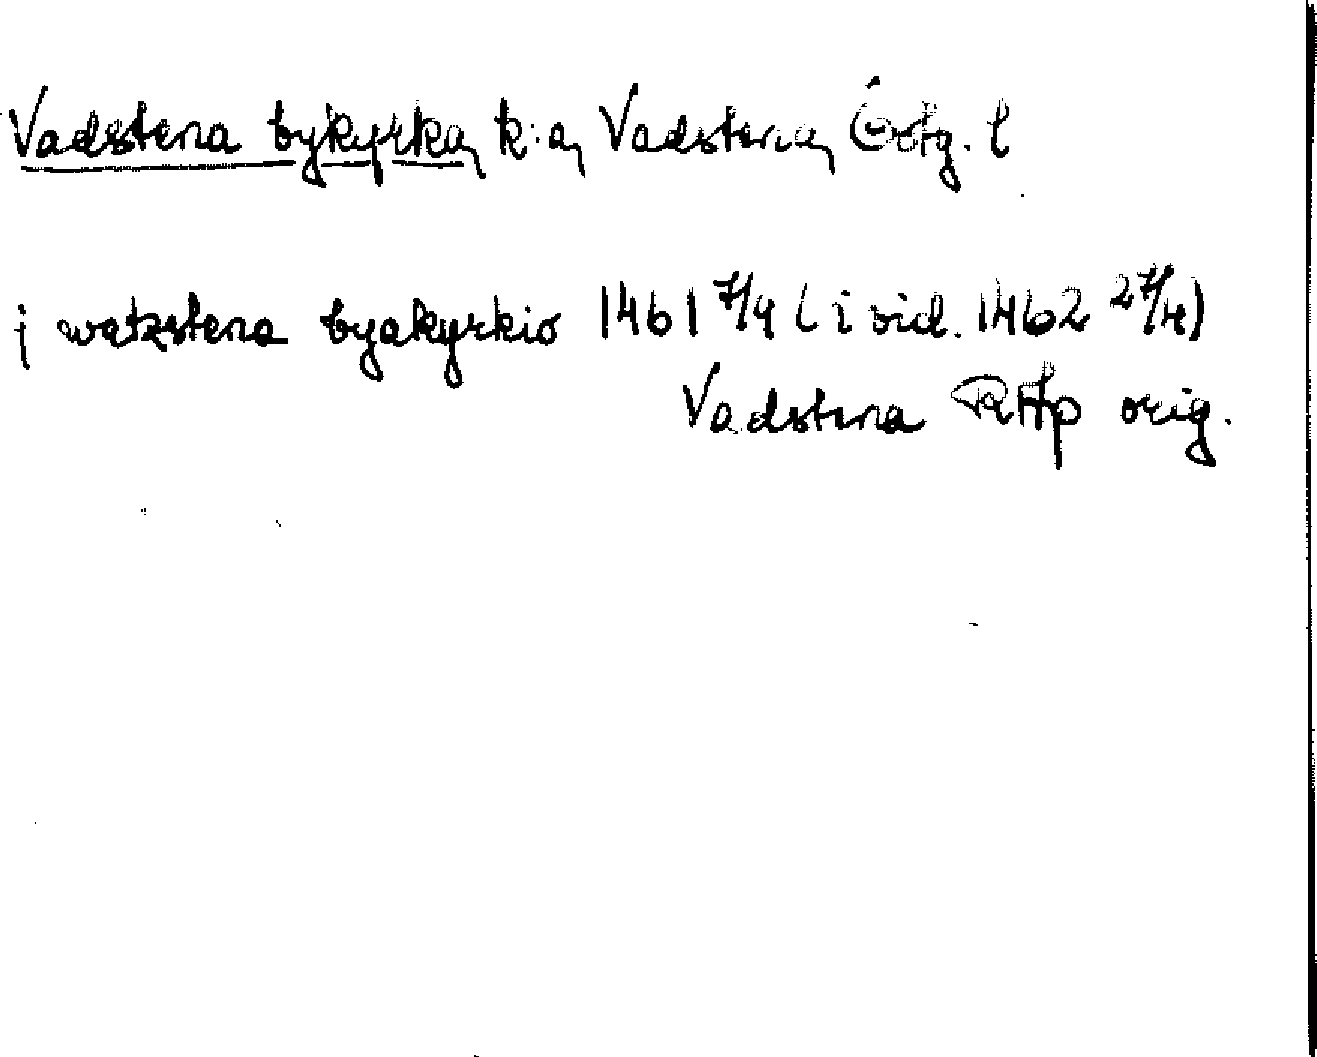 Vadstena bykyrka, k:a, Vadstena, Östg. l
j watzstena byakyrkio 1461 7/4 (i vid. 1462 27/4)
Vadstena RAp orig.